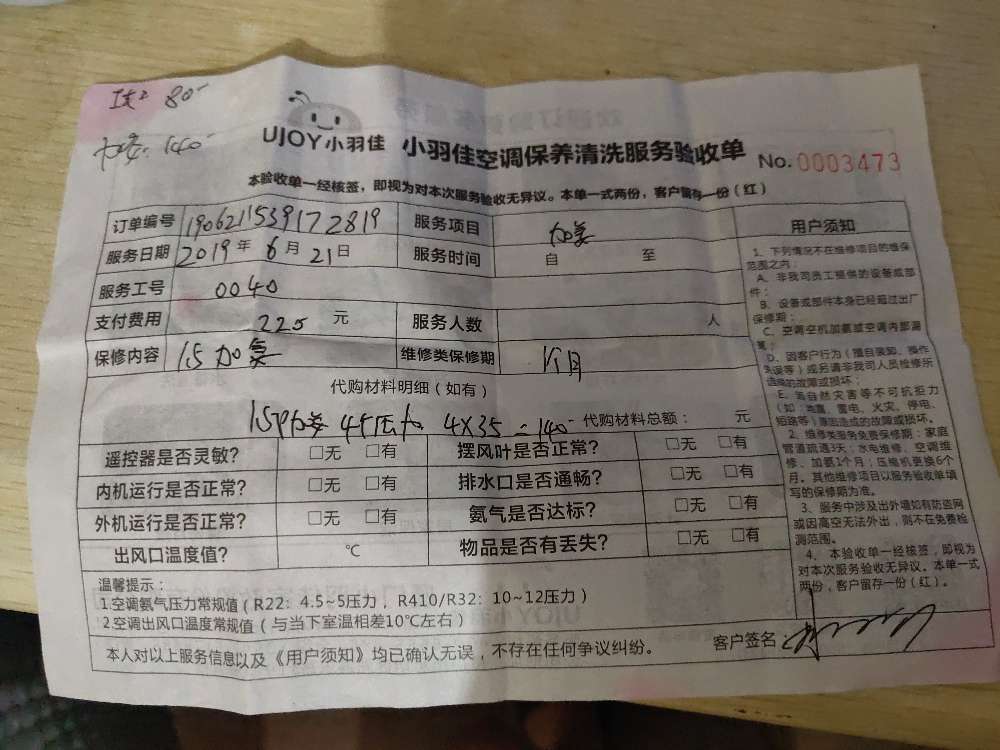 80
加 140
UJOY小羽佳 小羽佳空调保养清洗服务验收单 No. 0003473
本验收单一经核签，即视为对本次服务验收无异议。本单一式两份，客户留存一份（红）
订单编号 190621153917 2819 服务项目
服务日期 2019 年 6 月 21 日 服务时间 自 至
服务工号 0040
支付费用 225 元 服务人数 人
保修内容 1.5 加氟 维修类保修期 1个月
代购材料明细（如有）
1.5P 4个压力 4X35=140 代购材料总额： 元
遥控器是否灵敏? □无 □有 摆风叶是否正常? □无 □有
内机运行是否正常? □无 □有 排水口是否通畅? □无 □有
外机运行是否正常? □无 □有 氨气是否达标? □无 □有
出风口温度值? ℃ 物品是否有丢失? □无 □有
温馨提示：
1.空调氨气压力常规值（R22：4.5~5压力，R410/R32：10~12压力）
2.空调出风口温度常规值（与当下室温相差10℃左右）
本人对以上服务信息以及《用户须知》均已确认无误，不存在任何争议纠纷。
客户签名：
用户须知
1、下列情况不在维修项目的维保
范围之内：
A、非我司员工提供的设备或部
件；
B、设备或部件本身已经超过出厂
保修期；
C、空调空机加氨或空调内部漏
D、因客户行为（擅自装卸、操作
失误等）或另请非我司人员检修所
造成的故障或损坏；
E、因自然灾害等不可抗拒力
（如：地震、雷电、火灾、停电、
短路等）原因造成的故障或损坏。
2、维修类服务免费保修期：家庭
管道疏通3天；水电维修、空调维
修、加氨1个月；压缩机更换6个
月。其他维修项目以服务验收单填
写的保修期为准。
3、服务中涉及出外墙如有防盗网
或因高空无法外出，则不在免费检
测范围。
4、本验收单一经核签，即视为
对本次服务验收无异议。本单一式
两份，客户留存一份（红）。